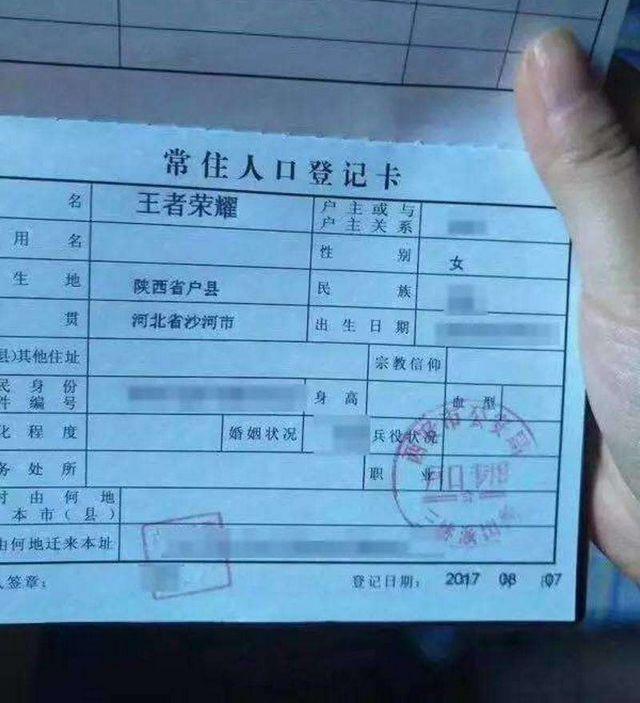 常住人口登记卡
名 王者荣耀 户主或与户主关系
用名 性别 女
生地 陕西省户县 民族
贯 河北省沙河市 出生日期
县)其他住址 宗教信仰
民身份 件编号 身高 血型
化程度 婚姻状况 兵役状况
务处所 职业
时由何地 本市(县)
由何地迁来本址
人签章: 登记日期: 2017 08 07